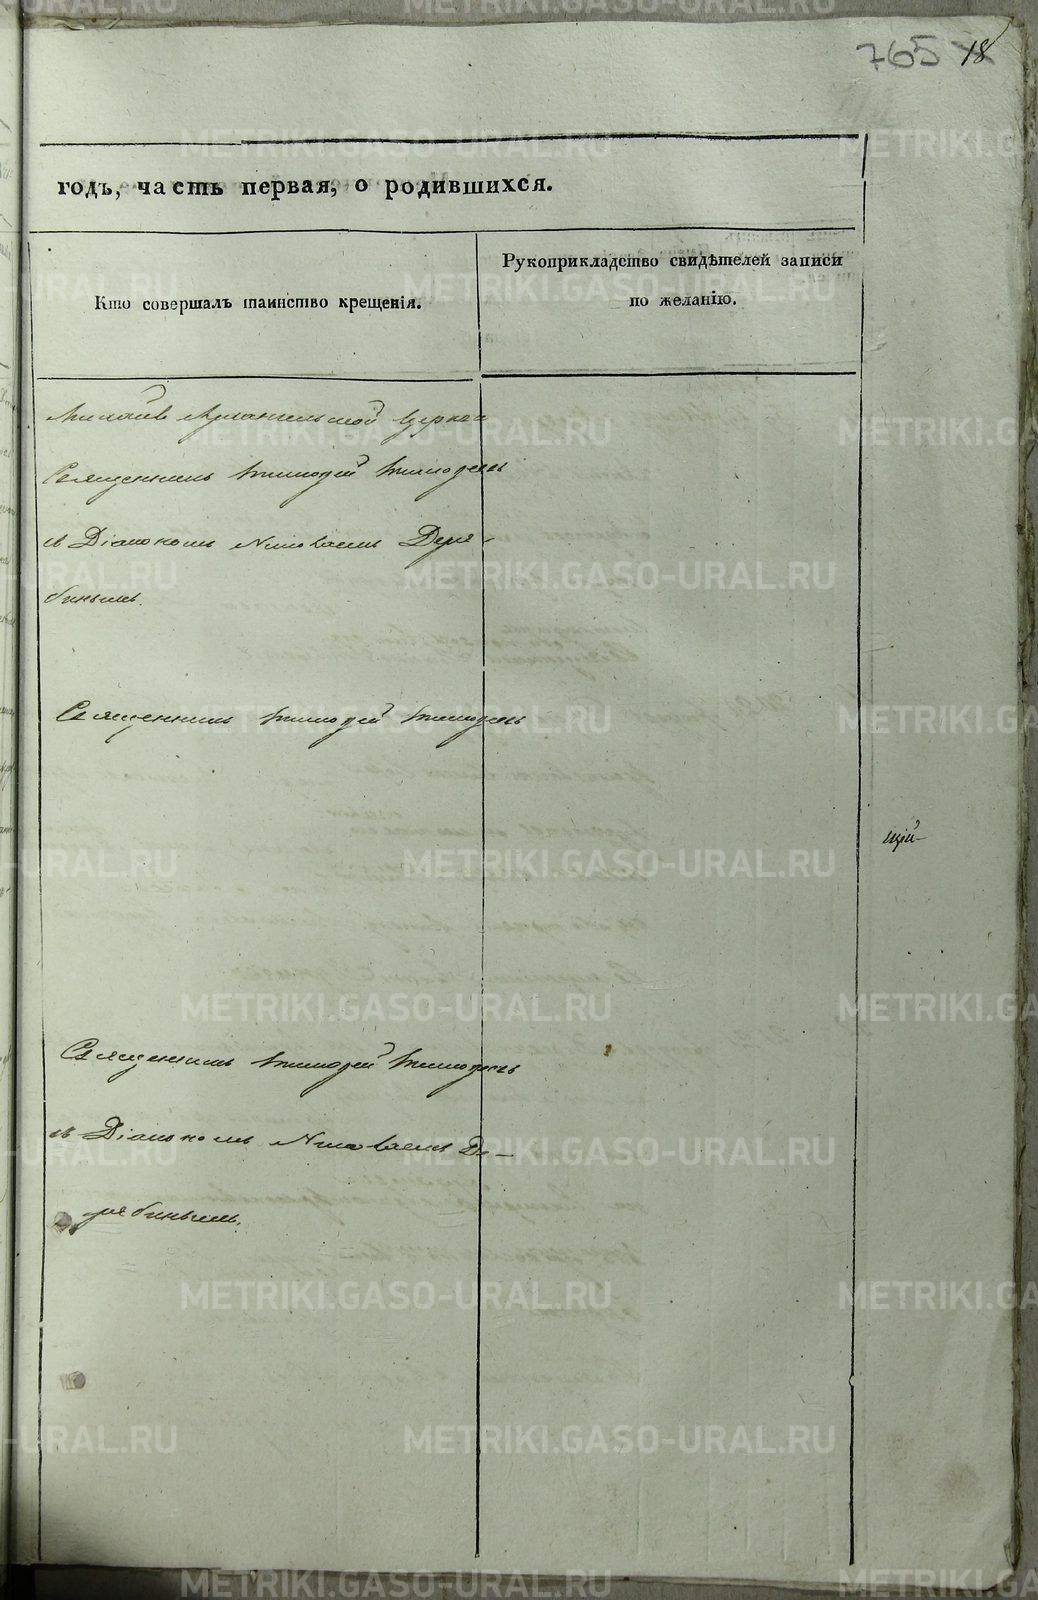 765 18
годъ, часть первая, о родившихся.
Кто совершалъ таинство крещенія.
Рукоприкладство свидѣтелей записи
по желанію.
Архангельской Церкви
Священникъ Тимофей
съ Діакономъ Николаемъ Деря-
бинымъ.
Священникъ Тимофей
щій
Священникъ Тимофей
съ Діакономъ Николаемъ Де-
рябинымъ.
METRIKI.GASO-URAL.RU